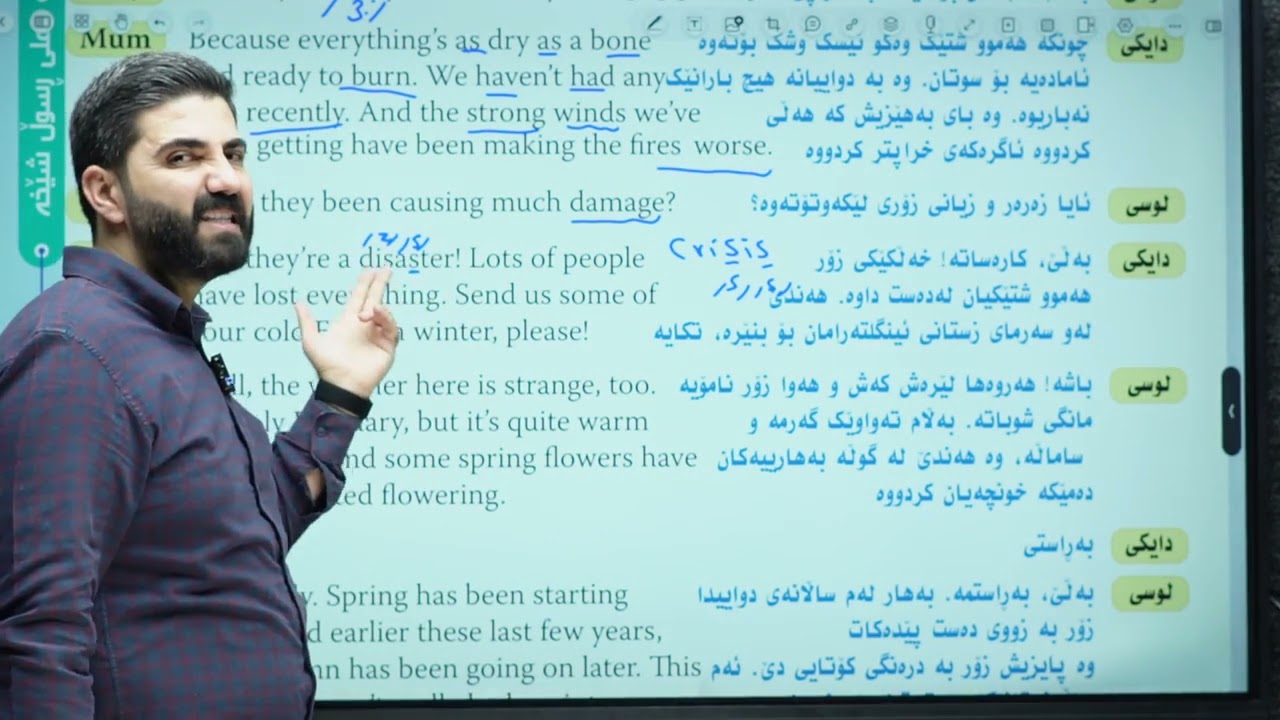 عەلی ڕسوڵ شێخە
Mum Because everything's as dry as a bone چونکە هەموو شتێک وەکو ئێسک وشک بۆتەوە دایکی
ready to burn. We haven't had any ئامادەیە بۆ سوتان. وە بە دواییانە هیچ بارانێک
recently. And the strong winds we've نەباریوە. وە بای بەهێزیش کە هەڵی
getting have been making the fires worse. کردووە ئاگرەکەی خراپتر کردووە
they been causing much damage? ئایا زەرەر و زیانی زۆری لێکەوتۆتەوە؟ لوسی
they're a disaster! Lots of people Crisis بەڵێ، کارەساتە! خەڵکێکی زۆر دایکی
have lost everything. Send us some of هەموو شتێکیان لەدەست داوە. هەندێ
your cold winter, please! لەو سەرمای زستانی ئینگلتەرامان بۆ بنێرە، تکایە
the here is strange, too. باشە! هەروەها لێرەش کەش و هەوا زۆر نامۆیە لوسی
but it's quite warm مانگی شوباتە. بەڵام تەواوێک گەرمە و
and some spring flowers have ساماڵە، وە هەندێ لە گوڵە بەهارییەکان
flowering. دەمێکە خونچەیان کردووە
بەڕاستی دایکی
Spring has been starting بەڵێ، بەڕاستمە. بەهار لەم ساڵانەی دواییدا لوسی
earlier these last few years, زۆر بە زووی دەست پێدەکات
has been going on later. This وە پایزیش زۆر بە درەنگی کۆتایی دێ. ئەم